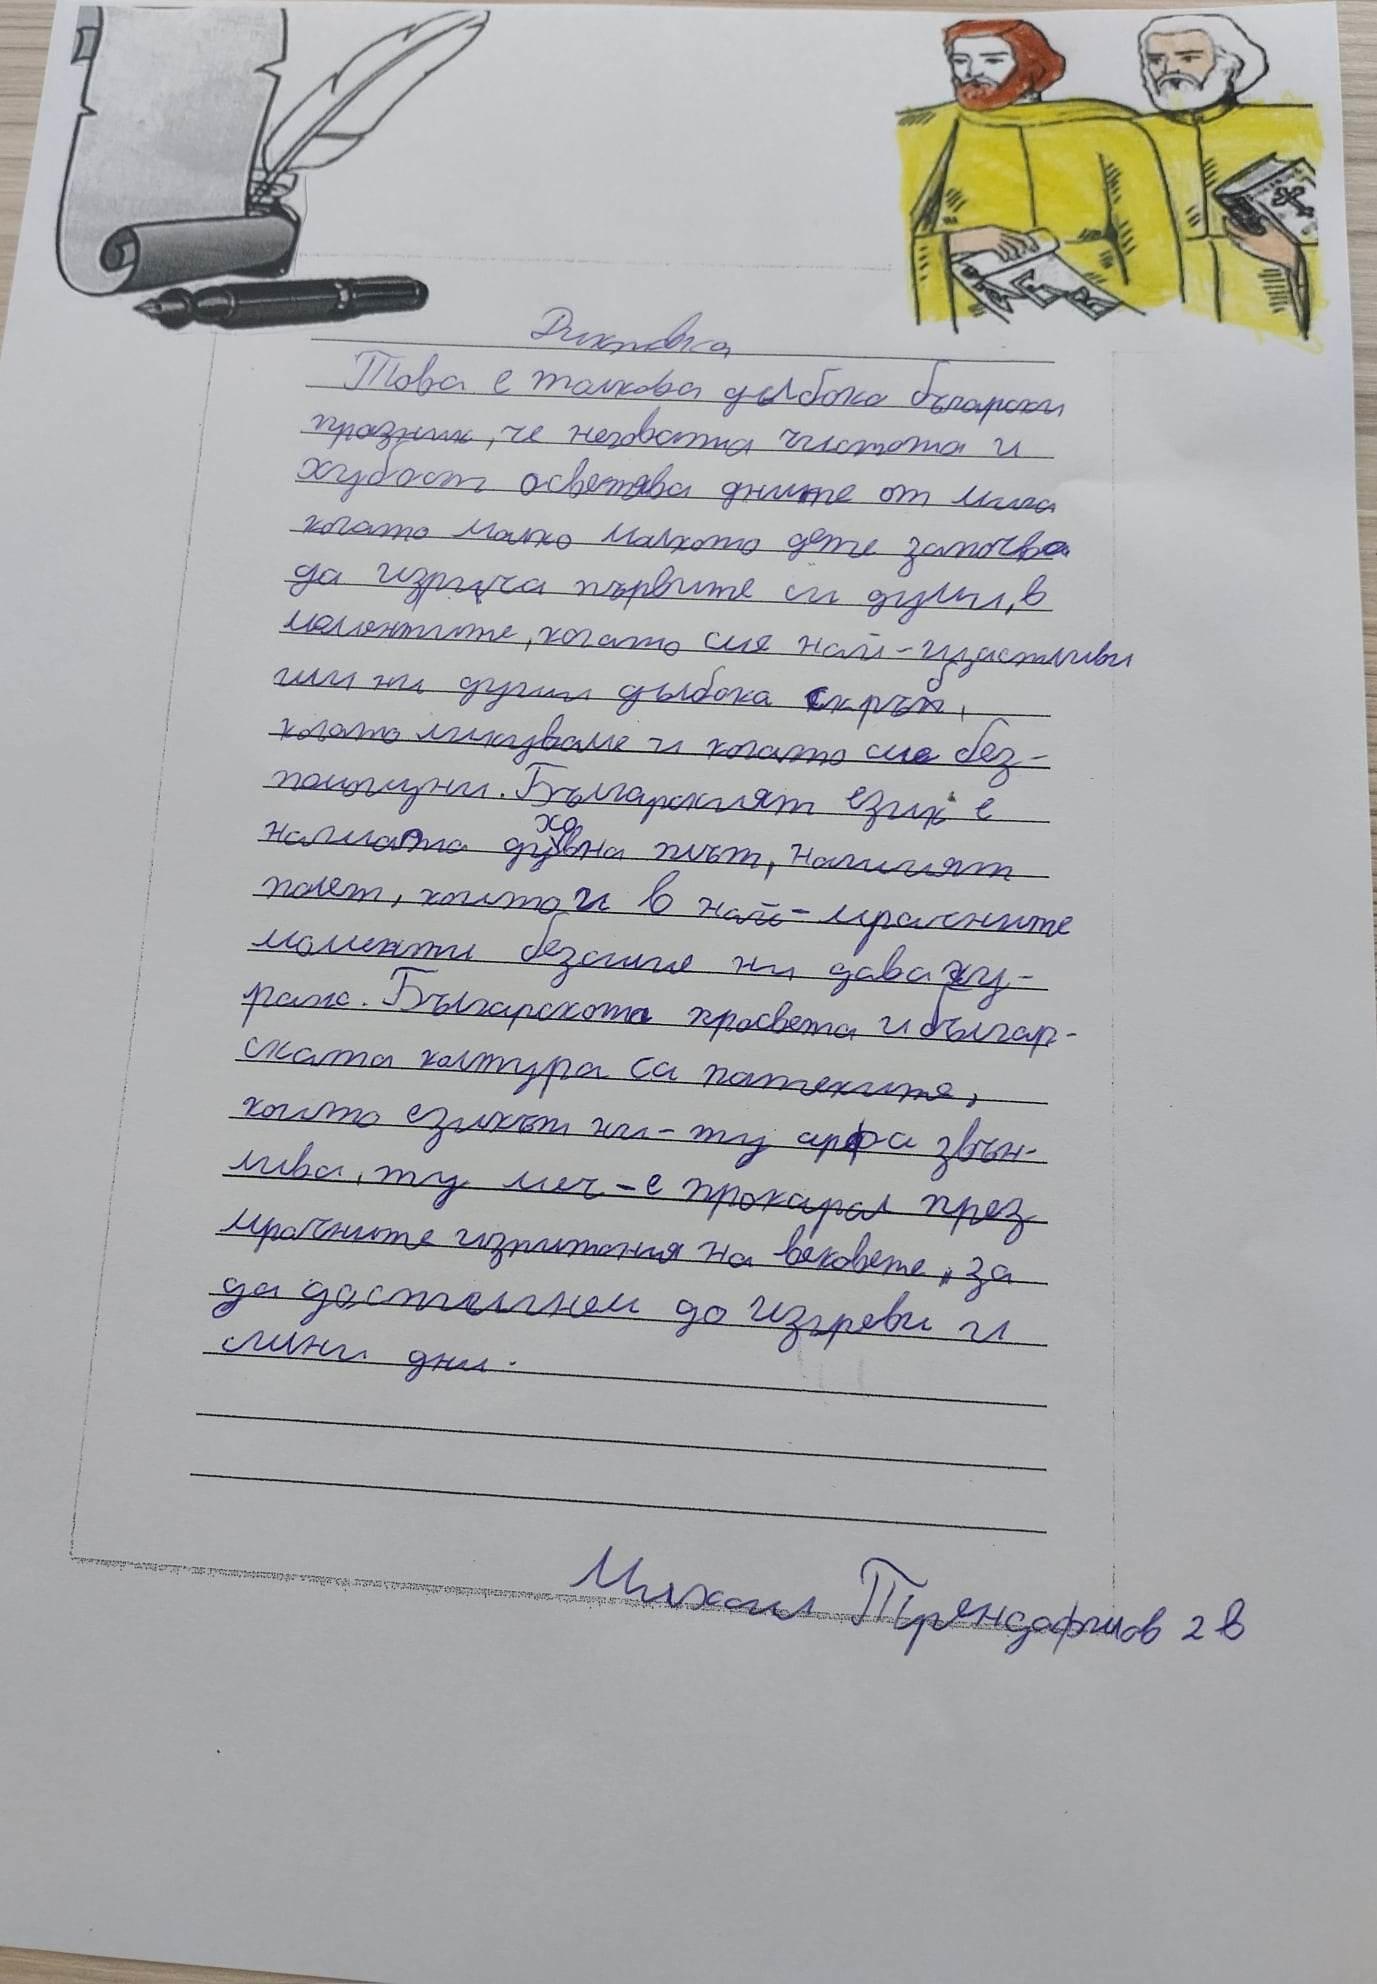 Диктовка
Това е толкова дълбоко български
празник, че неговатна чистота и
хубост осветява дните от мига
когато малко малкото дете започва
да изрича първите си думи, в
моментите, когато сме най-щастливи
или ни души дълбока скръб,
когато ликуваме и когато сме без-
помощни. Българският език е
нашата духовна плът, нашият
полет, който и в най-мрачните
моменти безспир ни дава ку-
раж. Българскота просвета и българ-
ската култура са патеките,
които езикът ни-ту арфа звън-
лива, ту меч-е прокарал през
мрачните изпитания на вековете, за
да достигнем до изгреви и
слънчеви дни.
Михаил Тряндафилов 2 в